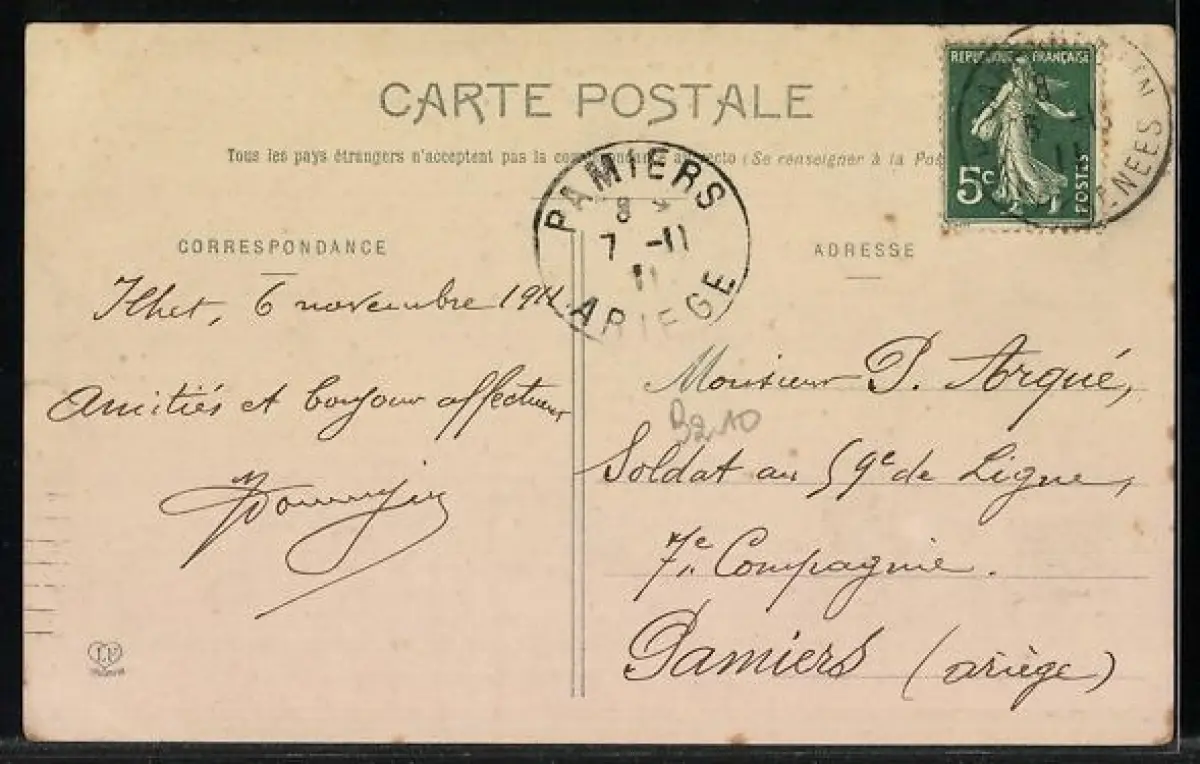 CARTE POSTALE
Tous les pays étrangers n'acceptent pas la correspondance au recto (Se renseigner à la Pos
RÉPUBLIQUE FRANÇAISE
5c
POSTES
ENEES
PAMIERS
8
7 -11
11
ARIEGE
CORRESPONDANCE
ADRESSE
Ilhet, 6 novembre 1911.
Amitiés et bonjour affectueux
Monsieur P. Arqué,
B210
Soldat au 59e de Ligne,
7e Compagnie.
Pamiers (ariège)